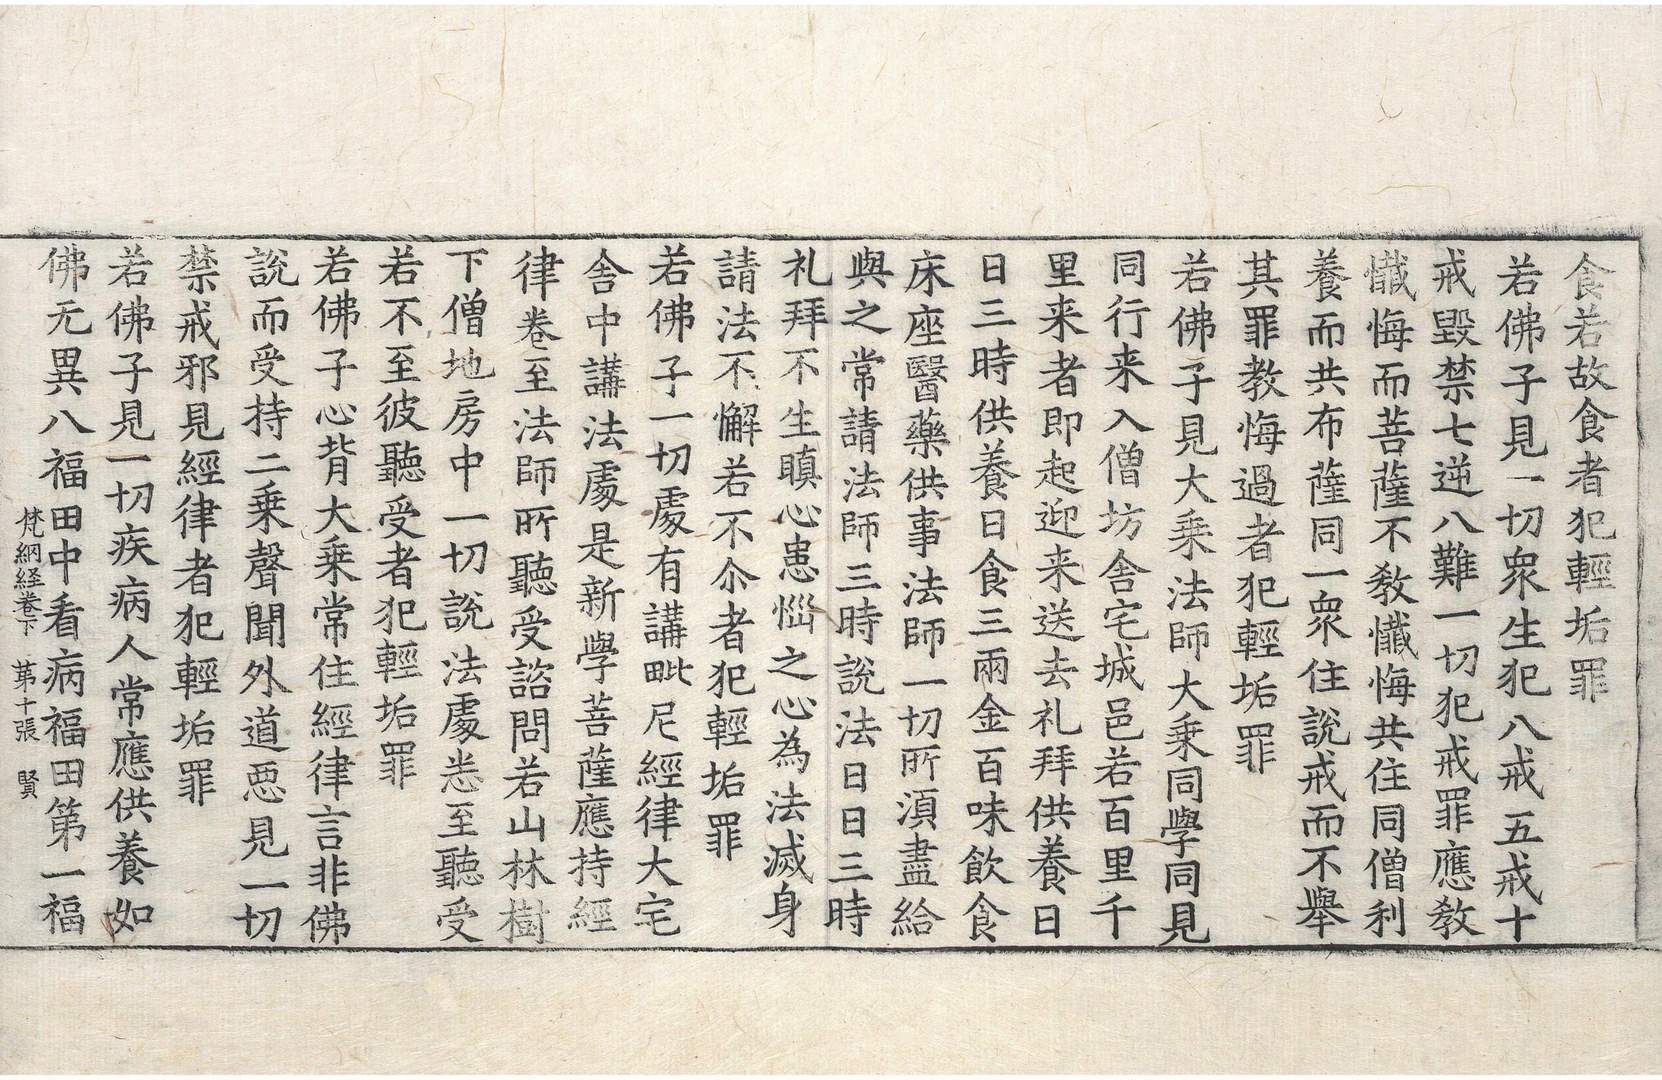 食若故食者犯輕垢罪
若佛子見一切衆生犯八戒五戒十
戒毀禁七逆八難一切犯戒罪應教
懺悔而菩薩不教懺悔共住同僧利
養而共布薩同一衆住說戒而不舉
其罪教悔過者犯輕垢罪
若佛子見大乘法師大乘同學同見
同行来入僧坊舍宅城邑若百里千
里来者即起迎来送去礼拜供養日
日三時供養日食三兩金百味飲食
床座醫藥供事法師一切所湏盡給
與之常請法師三時說法日日三時
礼拜不生瞋心患惱之心為法滅身
請法不懈若不尒者犯輕垢罪
若佛子一切處有講毗尼經律大宅
舍中講法處是新學菩薩應持經
律卷至法師所聽受諮問若山林樹
下僧地房中一切說法處悉至聽受
若不至彼聽受者犯輕垢罪
若佛子心背大乘常住經律言非佛
說而受持二乘聲聞外道悪見一切
禁戒邪見經律者犯輕垢罪
若佛子見一切疾病人常應供養如
佛无異八福田中看病福田第一福
梵網経卷下 苐十張 賢